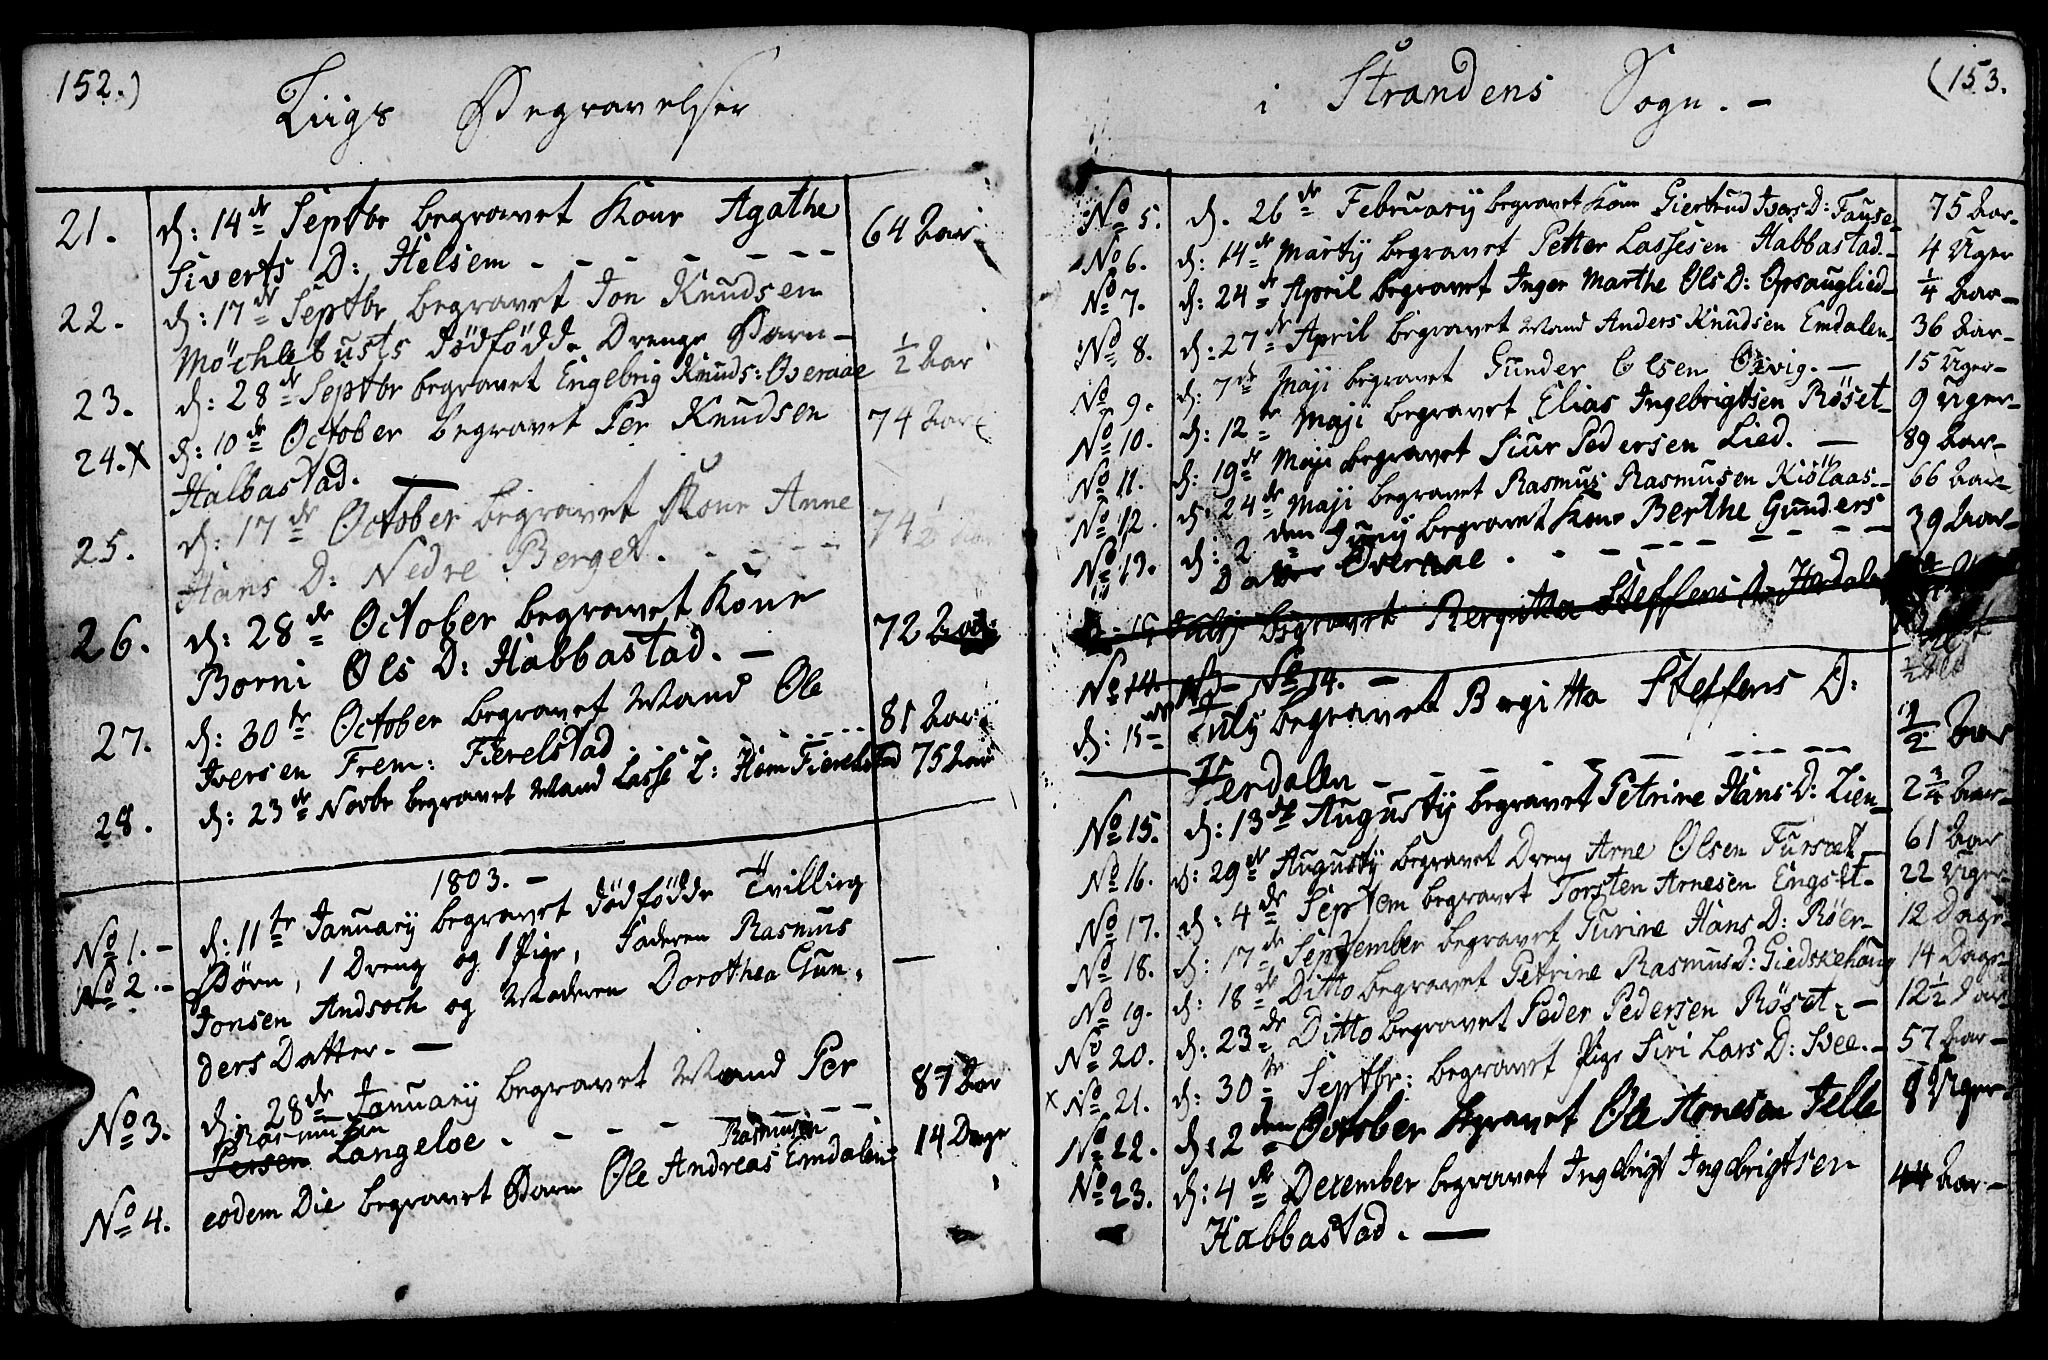 152.)
Liigs Begravelser
21. d: 14de Septbr begravet Kone Agathe 64 Aar
Siverts D: Helsem - - - - - - -
22. d: 17de Septbr begravet Jon Knudsen
Möchlebusts dödfödde Drenge Barn -
23. d: 28de Septbr begravet Engebrig Knuds: Overaae 1/2 Aar
24. x d: 10de October begravet Per Knudsen 74 Aar
Halbastad. -
25. d: 17de October begravet Kone Anne 74 1/2 Aar
Hans D: Nedre Berget. - - - - -
26. d: 28de October begravet Kone 72 Aar
Borni Ols D: Habbastad. -
27. d: 30te October begravet Mand Ole 81 Aar
Iversen Frem: Fierelstad - - - - -
28. d: 23de Novbr begravet Mand Lasse L: Hem Fierelstad 75 Aar
1803. -
No 1. - d: 11te January begravet dödfödde Tvilling
No 2. - Börn, 1 Dreng og 1 Pige, Faderen Rasmus -
Jonsen Andsoch og Moderen Dorothea Gun-
ders Datter. -
No 3. d: 28de January begravet Mand Per 87 Aar
Rasmussen
Persen Langeloe - - - - - - -
Rasmusen
No 4. eodem Die begravet Barn Ole Andreas Emdalen 14 Dage
(153.
i Strandens Sogn. -
No 5. d. 26de February begravet Kone Giertrud Ivers D: Fause 75 Aar -
No 6. d: 14de Marty begravet Petter Lassesen Habbastad - 4 Uger
No 7. d: 24de April begravet Inger Marthe Ols D: Opsauglied - 1/4 Aar -
No 8. d: 27de April begravet Mand Anders Knudsen Emdalen - 36 Aar -
No 9. d: 7de Maji begravet Gunder Olsen Örvig. - 15 Uger -
No 10. d: 12te Maji begravet Elias Ingebrigtsen Röset - 9 Uger -
No 11. d: 19de Maji begravet Siur Pedersen Lied. - 89 Aar -
No 12. d: 24de Maji begravet Rasmus Rasmusen Kiölaas - 66 Aar
No 13. d: 2den Juny begravet Kone Berthe Gunders 39 Aar -
Datter Overaae - - - - - - - -
15 July begravet Bergitta Steffens D: Herdalen
No 14. No 14. -
d: 15de July begravet Bergitta Steffens D: 1/2 Aar
Herdalen - - - - - - - - -
No 15. d: 13de Augusty begravet Petrine Hans D: Lien - 2 3/4 Aar -
No 16. d: 29de Augusty begravet Dreng Arne Olsen Fursæt - 61 Aar
No 17. d: 4de Septem begravet Torsten Arnesen Engset - 22 Uger -
No 18. d: 17de September begravet Turine Hans D: Röer - 12 Dage -
No 19. d: 18de Ditto begravet Petrine Rasmus D: Giedskehaug 14 Dage -
No 20. d: 23de Ditto begravet Peder Pedersen Röset. - 12 1/2 Aar
x No 21. d: 30te Septbr: begravet Pige Siri Lars D: Svee. - 57 Aar -
No 22. d: 2den October begravet Ole Arnesen Jelle 8 Uger -
No 23. d: 4de December begravet Ingebrigt Ingebrigtsen 44 Aar -
Habbastad. -